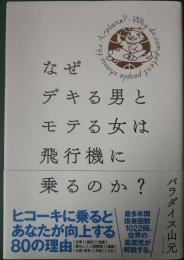 the A-plane? - Why do competent people choose
なぜ
デキる男と
モテる女は
飛行機に
乗るのか？
パラダイス山元
ヒコーキに乗ると
あなたが向上する
80の理由
最多年間
搭乗回数
1022回。
空界の
風雲児が
解説する。